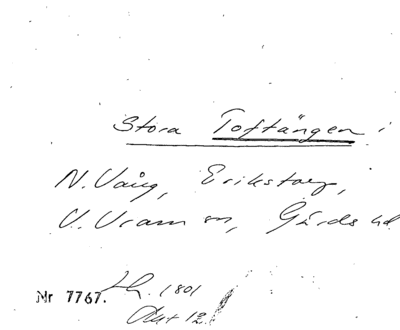 Stora Toftängen i
N. Vång, Erikstorp,
V. Vram sn, Gärds hd
Nr 7767. 1801
Akt 12.